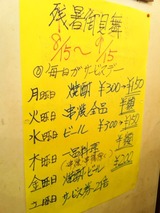 残暑御見舞
8/15〜9/15
毎日がサービスデー
月曜日 焼酎 ¥300→¥150
火曜日 串揚全品 半額
水曜日 ビール ¥300→¥150
木曜日 一品料理 半額
金曜日 焼酎 ビール ¥200
土曜日 サービス券 2倍